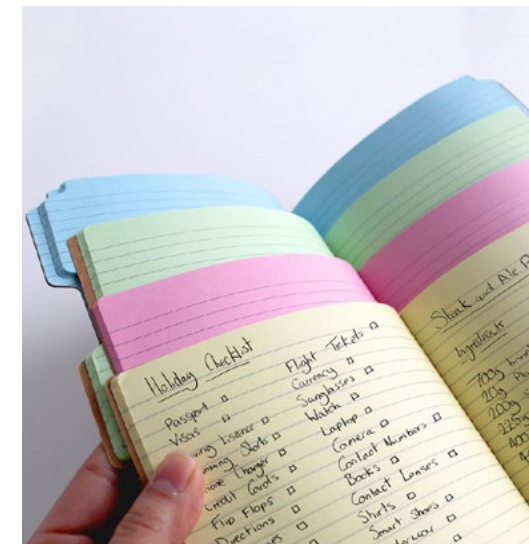 Holiday Checklist
Passport
Visas
Licence
Shorts
Charger
Credit Cards
Flip Flops
Directions
Flight Tickets
Currency
Sunglasses
Watch
Laptop
Camera
Contact Numbers
Books
Contact Lenses
Shirts
Smart Shoes
Steak and Ale
Ingredients
700g
20g
200g
225g